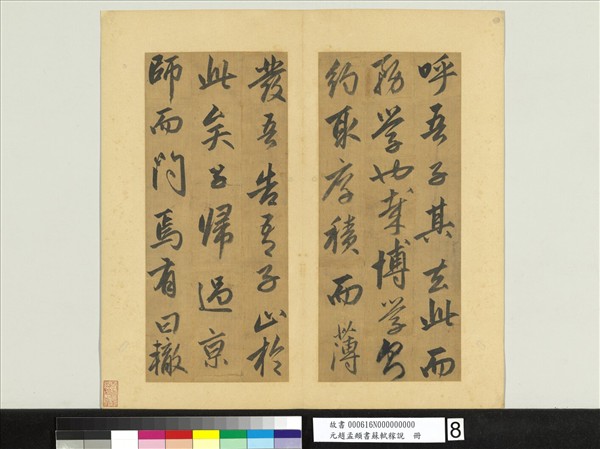 呼吾子其去此而
務學也哉博學而
約取厚積而薄
發吾告吾子止於
此矣子歸過京
師而問焉有曰轍
故書 000616N000000000
元趙孟頫書蘇軾稼說 冊
8